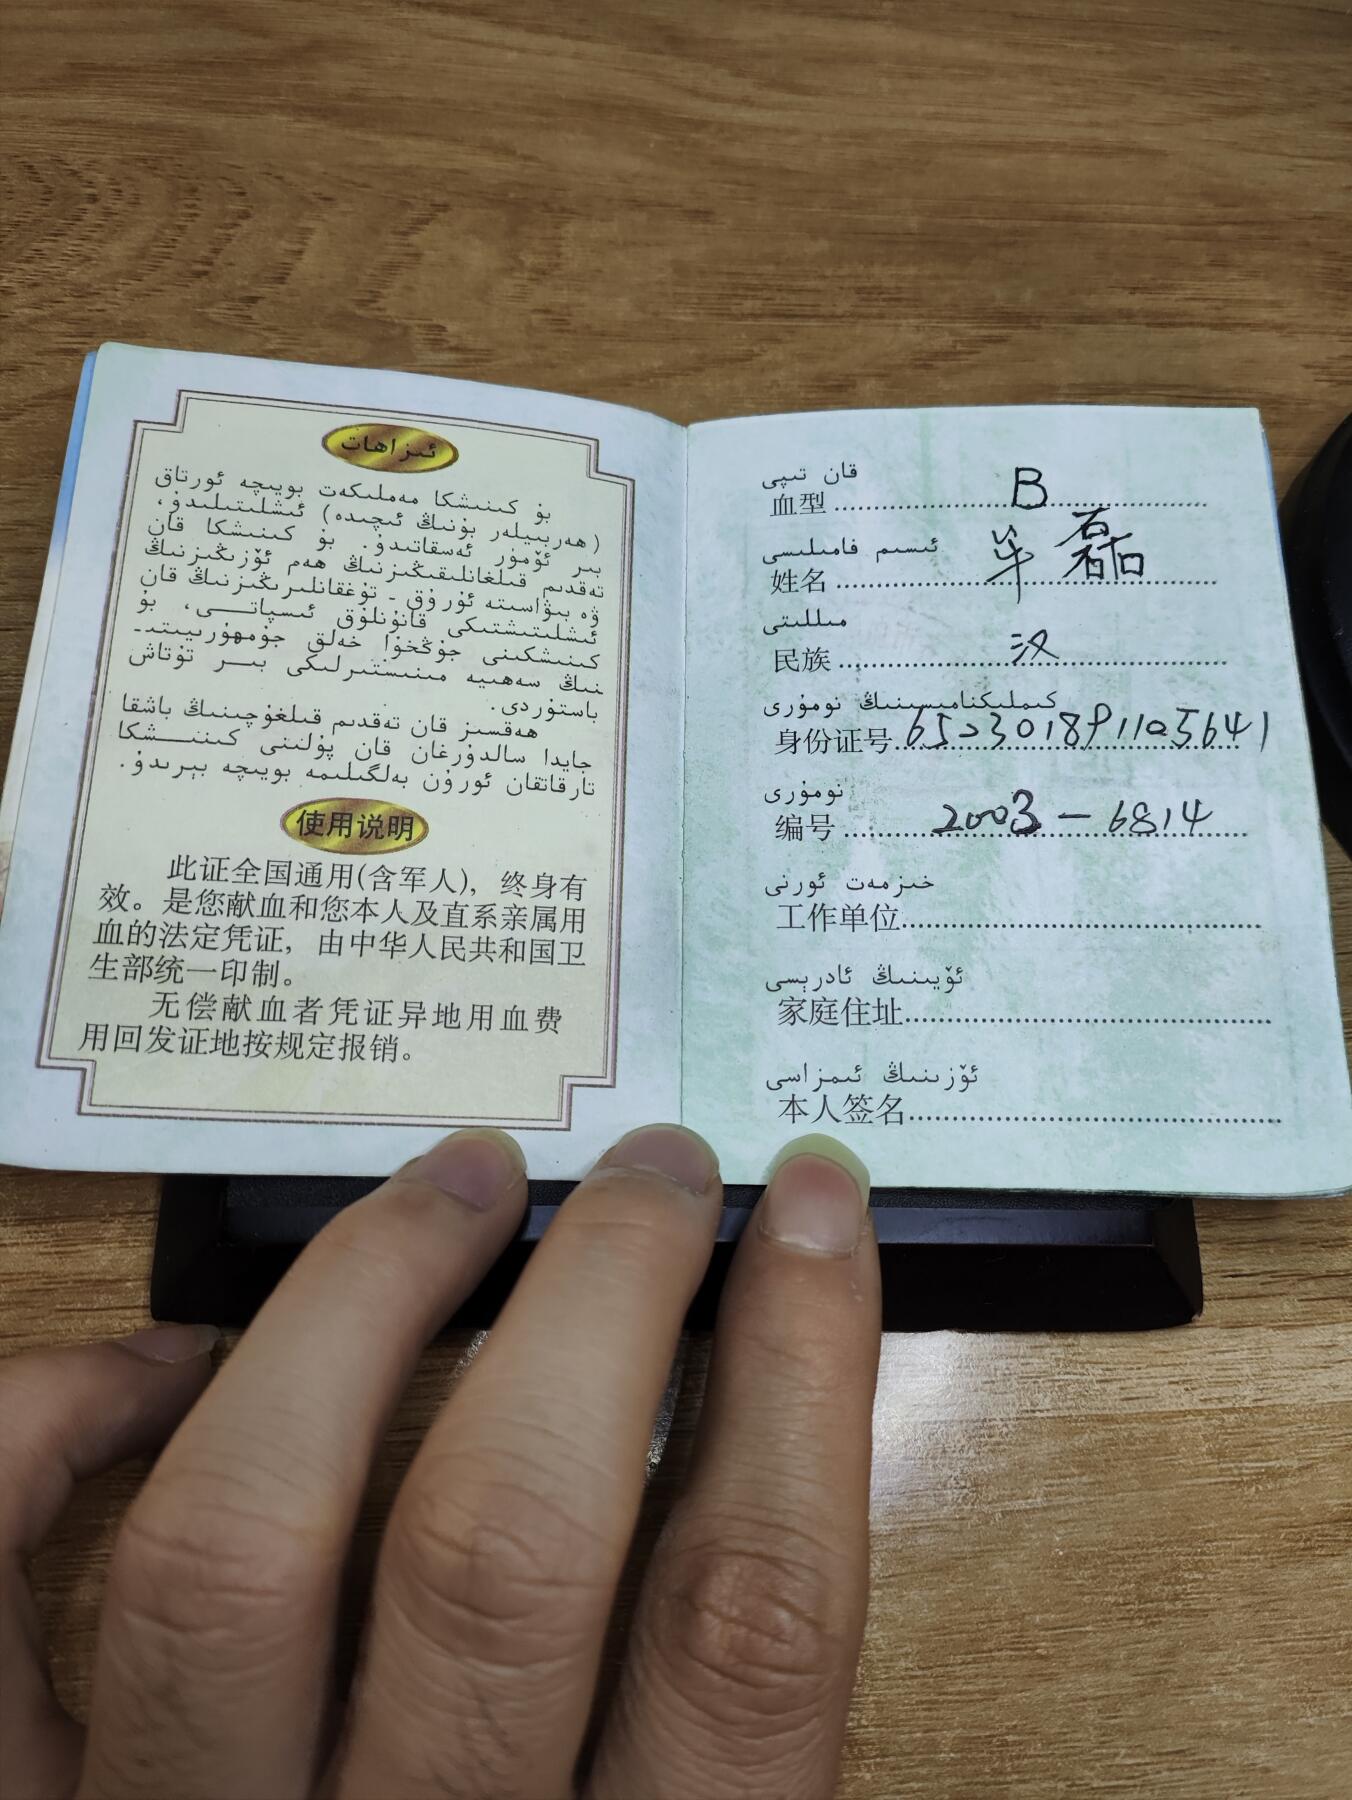 ئىزاھات
بۇ كىنىشكا مەملىكەت بويىچە ئورتاق
ئىشلىتىلىدۇ، (ھەربىيلەر بۇنىڭ ئىچىدە)
بىر ئۆمۈر ئەسقاتىدۇ. بۇ كىنىشكا قان
تەقدىم قىلغانلىقىڭىزنىڭ ھەم ئۆزىڭىزنىڭ
ۋە بىۋاسىتە ئۇرۇق - تۇغقانلىرىڭىزنىڭ قان
ئىشلىتىشتىكى قانۇنلۇق ئىسپاتى، بۇ
كىنىشكىنى جۇڭخۇا خەلق جۇمھۇرىيىتى-
نىڭ سەھىيە مىنىستىرلىكى بىر تۇتاش
باستۇردى.
ھەقسىز قان تەقدىم قىلغۇچىنىڭ باشقا
جايدا سالدۇرغان قان پۇلىنى كىنىشكا
تارقاتقان ئورۇن بەلگىلىمە بويىچە بېرىدۇ.
使用说明
此证全国通用(含军人)，终身有
效。是您献血和您本人及直系亲属用
血的法定凭证，由中华人民共和国卫
生部统一印制。
无偿献血者凭证异地用血费
用回发证地按规定报销。
قان تىپى
血型 B
ئىسىم فامىلىسى
姓名 磊
مىللىتى
民族 汉
كىملىكنامىسىنىڭ نومۇرى
身份证号 652301891105641
نومۇرى
编号 2003-6814
خىزمەت ئورنى
工作单位
ئۆيىنىڭ ئادرېسى
家庭住址
ئۆزىنىڭ ئىمزاسى
本人签名